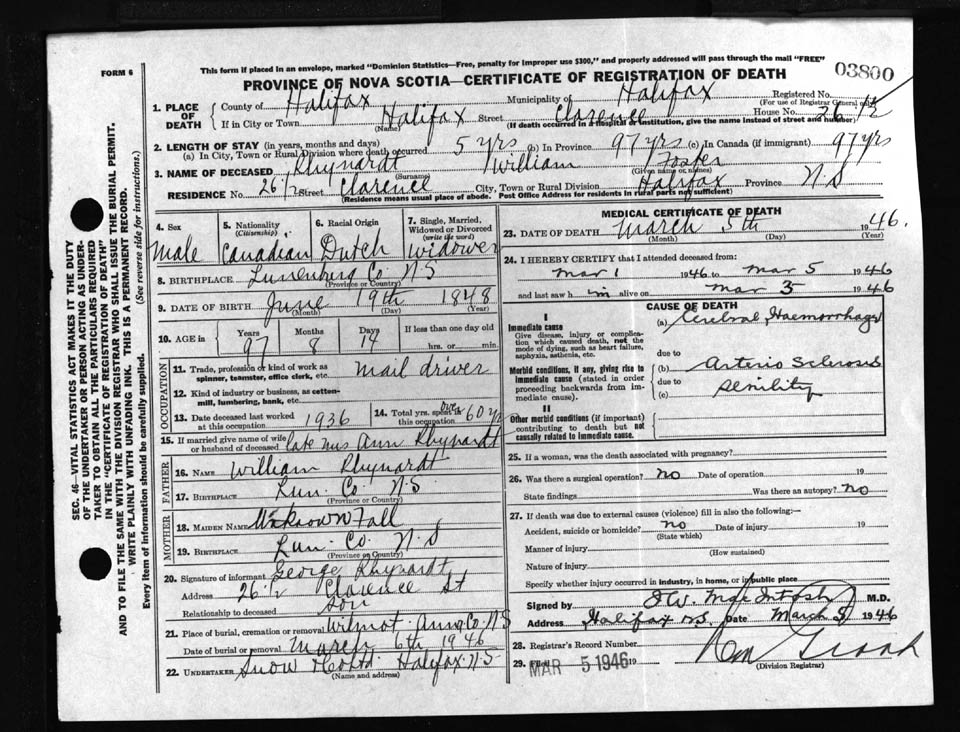 This form if placed in an envelope, marked "Dominion Statistics—Free, penalty for improper use $300," and properly addressed will pass through the mail "FREE"
FORM 6
PROVINCE OF NOVA SCOTIA—CERTIFICATE OF REGISTRATION OF DEATH
03800
1. PLACE OF DEATH
County of Halifax Municipality of Halifax Registered No.
(For use of Registrar General only)
If in City or Town Halifax Street Clarence House No. 26 1/2
(Name) (If death occurred in a hospital or institution, give the name instead of street and number)
2. LENGTH OF STAY (in years, months and days)
(a) In City, Town or Rural Division where death occurred 5 yrs (b) In Province 97 yrs (c) In Canada (if immigrant) 97 yrs
3. NAME OF DECEASED Rhynardt William Foster
(Surname) (Given name or names)
RESIDENCE No. 26 1/2 Street Clarence City, Town or Rural Division Halifax Province N.S
(Residence means usual place of abode. Post Office Address for residents in rural parts not sufficient)
4. Sex Male
5. Nationality (Citizenship) Canadian
6. Racial Origin Dutch
7. Single, Married, Widowed or Divorced (write the word) Widower
8. BIRTHPLACE Lunenburg Co N.S
(Province or Country)
9. DATE OF BIRTH June 19th 1848
(Month) (Day) (Year)
10. AGE in Years 97 Months 8 Days 14 If less than one day old hrs. or min.
OCCUPATION
11. Trade, profession or kind of work as spinner, teamster, office clerk, etc. Mail driver
12. Kind of industry or business, as cotton-mill, lumbering, bank, etc.
13. Date deceased last worked at this occupation 1936
14. Total yrs. spent in this occupation over 60 yrs
15. If married give name of wife or husband of deceased late Mrs Ann Rhynardt
FATHER
16. NAME William Rhynardt
17. BIRTHPLACE Lun. Co. N.S.
(Province or Country)
MOTHER
18. MAIDEN NAME Unknown Fall
19. BIRTHPLACE Lun. Co. N.S
(Province or Country)
20. Signature of informant George Rhynardt
Address 26 1/2 Clarence St
Relationship to deceased Son
21. Place of burial, cremation or removal Wilmot Anna. Co. N.S
Date of burial or removal March 6th 1946
22. UNDERTAKER Snow & Co Ltd. Halifax N.S
(Name and address)
MEDICAL CERTIFICATE OF DEATH
23. DATE OF DEATH March 5th 1946.
(Month) (Day) (Year)
24. I HEREBY CERTIFY that I attended deceased from:
Mar 1 1946 to Mar 5 1946
and last saw him alive on Mar 5 1946
CAUSE OF DEATH
I
Immediate cause
Give disease, injury or complication which caused death, not the mode of dying, such as heart failure, asphyxia, asthenia, etc.
(a) Cerebral Haemorrhage
due to
Morbid conditions, if any, giving rise to immediate cause (stated in order proceeding backwards from immediate cause).
(b) Arterio Sclerosis
due to
(c) Senility
II
Other morbid conditions (if important) contributing to death but not causally related to immediate cause.
25. If a woman, was the death associated with pregnancy?
26. Was there a surgical operation? no Date of operation 19
State findings Was there an autopsy? no
27. If death was due to external causes (violence) fill in also the following:—
Accident, suicide or homicide? no Date of injury 19
(State which)
Manner of injury
(How sustained)
Nature of injury
Specify whether injury occurred in industry, in home, or in public place
Signed by MacIntosh M.D.
Address Halifax N.S. Date March 5 1946
28. Registrar's Record Number
29. Filed MAR 5 1946 19
(Division Registrar)
SEC. 46—VITAL STATISTICS ACT MAKES IT THE DUTY
OF THE UNDERTAKER OR PERSON ACTING AS UNDERTAKER TO OBTAIN ALL THE PARTICULARS REQUIRED
IN THE "CERTIFICATE OF REGISTRATION OF DEATH"
AND TO FILE THE SAME WITH THE DIVISION REGISTRAR WHO SHALL ISSUE THE BURIAL PERMIT.
WRITE PLAINLY WITH UNFADING INK. THIS IS A PERMANENT RECORD.
Every item of information should be carefully supplied. (See reverse side for instructions.)